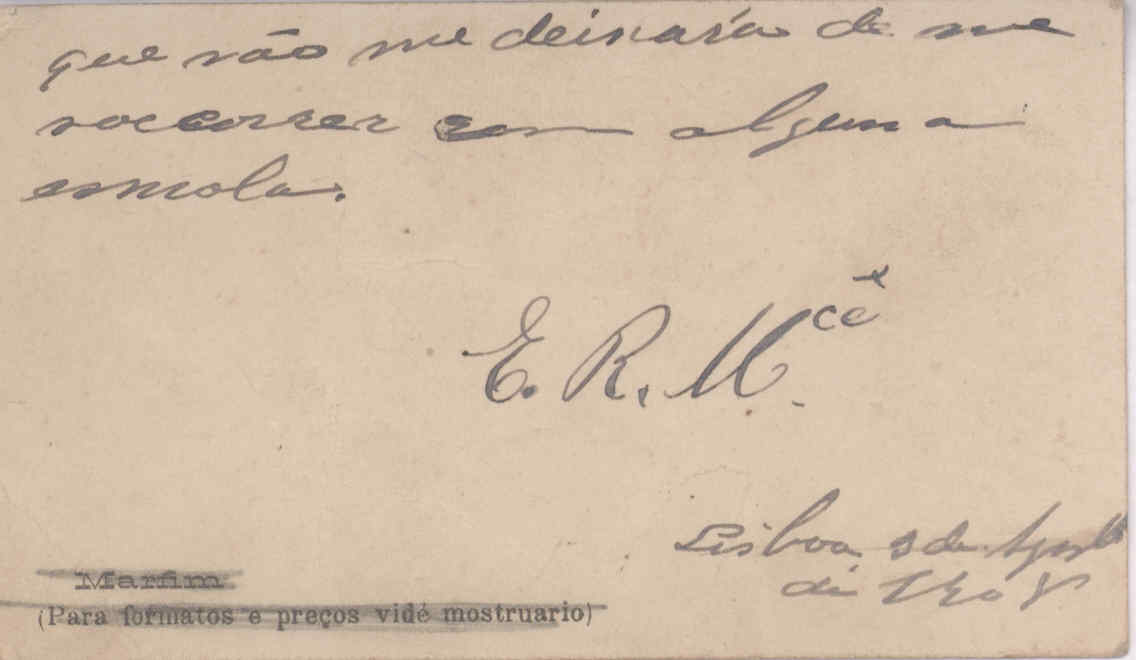 que não me deixará de me
soccorrer com alguma
esmola.
E. R. M.cê
Lisboa de Agosto
de
Marfim
(Para formatos e preços vidé mostruario)